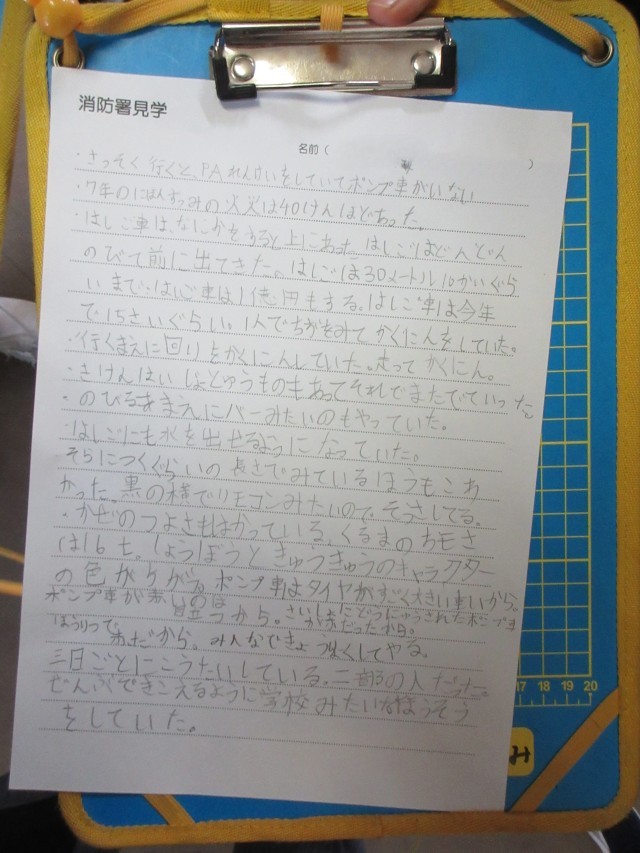 消防署見学
名前( )
・さっそく行くと、PAれんけいをしていてポンプ車がいない
・7年のにほんすみの火災は40けんほどあった。
・はしご車は、なにかをすると上にあった、はしごはどんどん
のびて前に出てきた。はしごは30メートル10かいぐら
いまで・はしご車は1億円もする。はしご車は今年
で15さいぐらい。1人でちかをみてかくにんをしていた。
・行くまえに回りをかくにんしていた。走ってかくにん。
・きけんはいじょとゆうものもあってそれでまたでていった
・のびるまえにバーみたいのもやっていた。
・はしごにも水を出せるようになっていた。
そらにつくぐらいの長さでみているほうもこち
かった。黒の横でリモコンみたいので、そうさしてる。
・かぜのつよさもはかっている、くるまのおもさ
は16t。しょうぼうときゅうきゅうのキャラクター
の色がケガ。ポンプ車はタイヤがすごく大きい重いから。
ポンプ車が赤いのは
目立つから。さいしょにどうにゅうされたポンプ車
が赤だったから。
ほうりつで
赤だから。みんなできょう力してやる。
三日ごとにこうたいしている。二部の人だった。
ぜんぶできこえるように学校みたいなほうそう
をしていた。
17 18 19 20
み